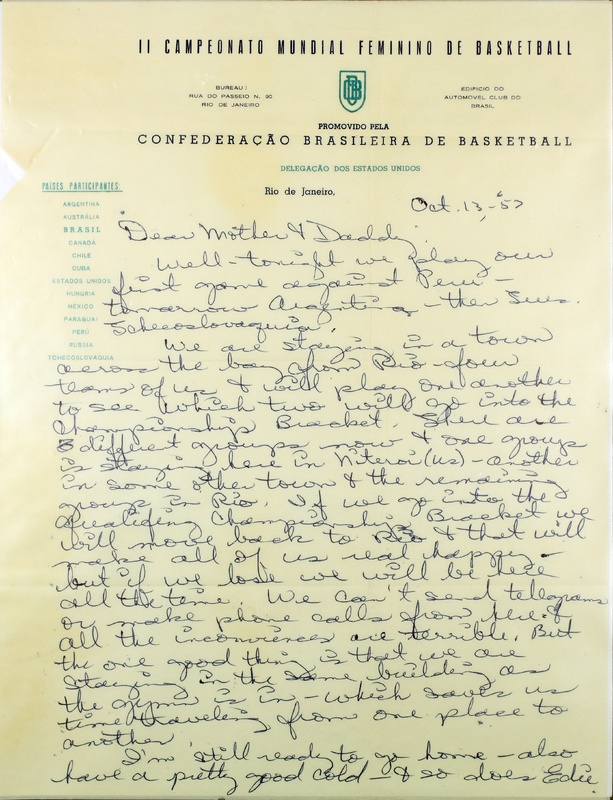 II CAMPEONATO MUNDIAL FEMININO DE BASKETBALL
BUREAU:
RUA DO PASSEIO N. 90
RIO DE JANEIRO
CBB
EDIFICIO DO
AUTOMOVEL CLUB DO
BRASIL
PROMOVIDO PELA
CONFEDERAÇÃO BRASILEIRA DE BASKETBALL
DELEGAÇÃO DOS ESTADOS UNIDOS
Rio de Janeiro,
Oct. 13, '57
PAISES PARTICIPANTES:
ARGENTINA
AUSTRÁLIA
BRASIL
CANADÁ
CHILE
CUBA
ESTADOS UNIDOS
HUNGRIA
MÉXICO
PARAGUAI
PERÚ
RUSSIA
TCHECOSLOVAQUIA
Dear Mother & Daddy,
Well - tonight we play our
first game against Peru -
tomorrow Argentina - then Tues.
Tchecoslovaquia.
We are staying in a town
across the bay from Rio - four
teams of us & will play one another
to see which two will go into the
Championship Bracket. There are
3 different groups now & one group
is staying here in Niteroi (us) - another
in some other town & the remaining
group in Rio. If we go into the
Qualifing Championship Bracket we
will move back to Rio & that will
make all of us real happy -
but if we lose we will be here
all the time. We can't send telegrams
or make phone calls from here &
all the inconvinces are terrible. But
the one good thing is that we are
staying in the same building as
the gym is in - which saves us
time traveling from one place to
another.
I'm still ready to go home - also
have a pretty good cold - & so does Edie